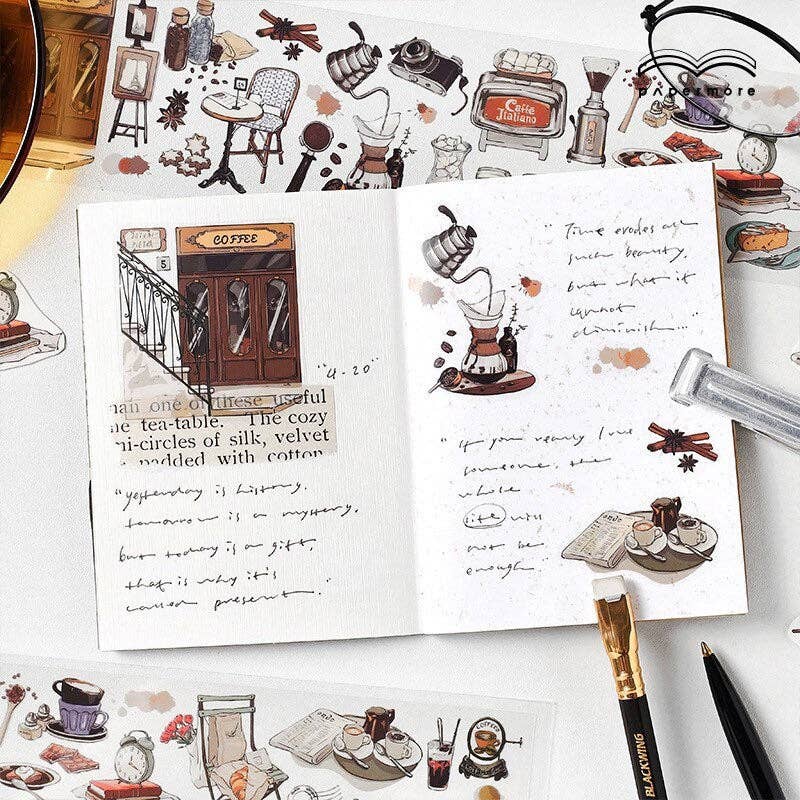 papermore
Caffè
Italiano
COFFEE
5
"4-20"
man one of these useful
he tea-table. The cozy
mi-circles of silk, velvet
padded with cotton
"yesterday is history.
tomorrow is a mystery.
but today is a gift.
that is why it's
called present."
"Time erodes all
such beauty,
but what it
cannot
diminish..."
"if you really love
someone, the
whole
life will
not be
enough.
BLACKWING
COFFEE